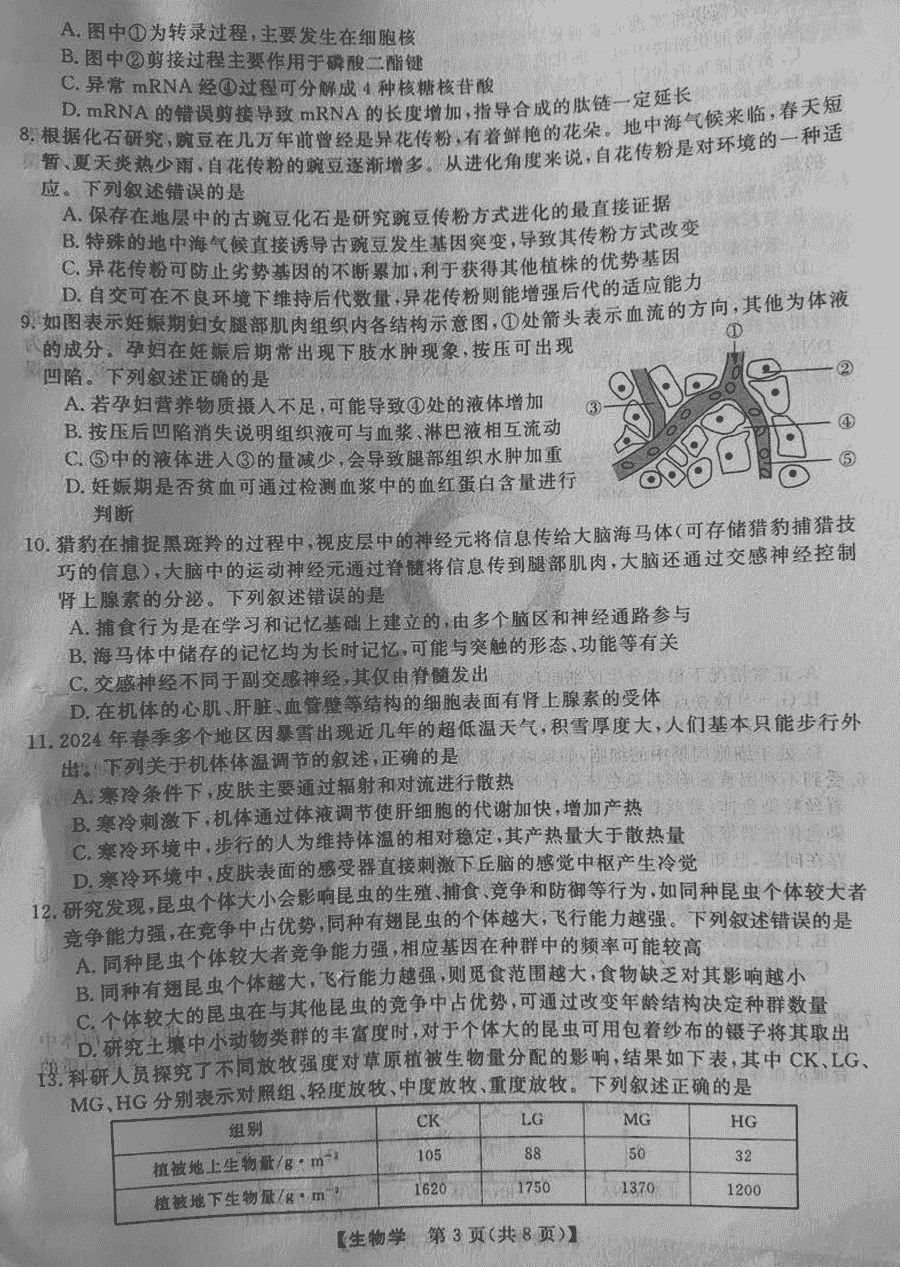 A. 图中①为转录过程,主要发生在细胞核
B. 图中②剪接过程主要作用于磷酸二酯键
C. 异常 mRNA 经④过程可分解成 4 种核糖核苷酸
D. mRNA 的错误剪接导致 mRNA 的长度增加,指导合成的肽链一定延长
8. 根据化石研究,豌豆在几万年前曾经是异花传粉,有着鲜艳的花朵。地中海气候来临,春天短
暂、夏天炎热少雨,自花传粉的豌豆逐渐增多。从进化角度来说,自花传粉是对环境的一种适
应。下列叙述错误的是
A. 保存在地层中的古豌豆化石是研究豌豆传粉方式进化的最直接证据
B. 特殊的地中海气候直接诱导古豌豆发生基因突变,导致其传粉方式改变
C. 异花传粉可防止劣势基因的不断累加,利于获得其他植株的优势基因
D. 自交可在不良环境下维持后代数量,异花传粉则能增强后代的适应能力
9. 如图表示妊娠期妇女腿部肌肉组织内各结构示意图,①处箭头表示血流的方向,其他为体液
的成分。孕妇在妊娠后期常出现下肢水肿现象,按压可出现
凹陷。下列叙述正确的是
A. 若孕妇营养物质摄入不足,可能导致④处的液体增加
B. 按压后凹陷消失说明组织液可与血浆、淋巴液相互流动
C. ⑤中的液体进入③的量减少,会导致腿部组织水肿加重
D. 妊娠期是否贫血可通过检测血浆中的血红蛋白含量进行
判断
①
②
③
④
⑤
10. 猎豹在捕捉黑斑羚的过程中,视皮层中的神经元将信息传给大脑海马体(可存储猎豹捕猎技
巧的信息),大脑中的运动神经元通过脊髓将信息传到腿部肌肉,大脑还通过交感神经控制
肾上腺素的分泌。下列叙述错误的是
A. 捕食行为是在学习和记忆基础上建立的,由多个脑区和神经通路参与
B. 海马体中储存的记忆均为长时记忆,可能与突触的形态、功能等有关
C. 交感神经不同于副交感神经,其仅由脊髓发出
D. 在机体的心肌、肝脏、血管壁等结构的细胞表面有肾上腺素的受体
11. 2024 年春季多个地区因暴雪出现近几年的超低温天气,积雪厚度大,人们基本只能步行外
出。下列关于机体体温调节的叙述,正确的是
A. 寒冷条件下,皮肤主要通过辐射和对流进行散热
B. 寒冷刺激下,机体通过体液调节使肝细胞的代谢加快,增加产热
C. 寒冷环境中,步行的人为维持体温的相对稳定,其产热量大于散热量
D. 寒冷环境中,皮肤表面的感受器直接刺激下丘脑的感觉中枢产生冷觉
12. 研究发现,昆虫个体大小会影响昆虫的生殖、捕食、竞争和防御等行为,如同种昆虫个体较大者
竞争能力强,在竞争中占优势,同种有翅昆虫的个体越大,飞行能力越强。下列叙述错误的是
A. 同种昆虫个体较大者竞争能力强,相应基因在种群中的频率可能较高
B. 同种有翅昆虫个体越大,飞行能力越强,则觅食范围越大,食物缺乏对其影响越小
C. 个体较大的昆虫在与其他昆虫的竞争中占优势,可通过改变年龄结构决定种群数量
D. 研究土壤中小动物类群的丰富度时,对于个体大的昆虫可用包着纱布的镊子将其取出
13. 科研人员探究了不同放牧强度对草原植被生物量分配的影响,结果如下表,其中 CK、LG、
MG、HG 分别表示对照组、轻度放牧、中度放牧、重度放牧。下列叙述正确的是
组别 CK LG MG HG
植被地上生物量/g·m⁻² 105 88 50 32
植被地下生物量/g·m⁻² 1620 1750 1370 1200
【生物学 第 3 页(共 8 页)】